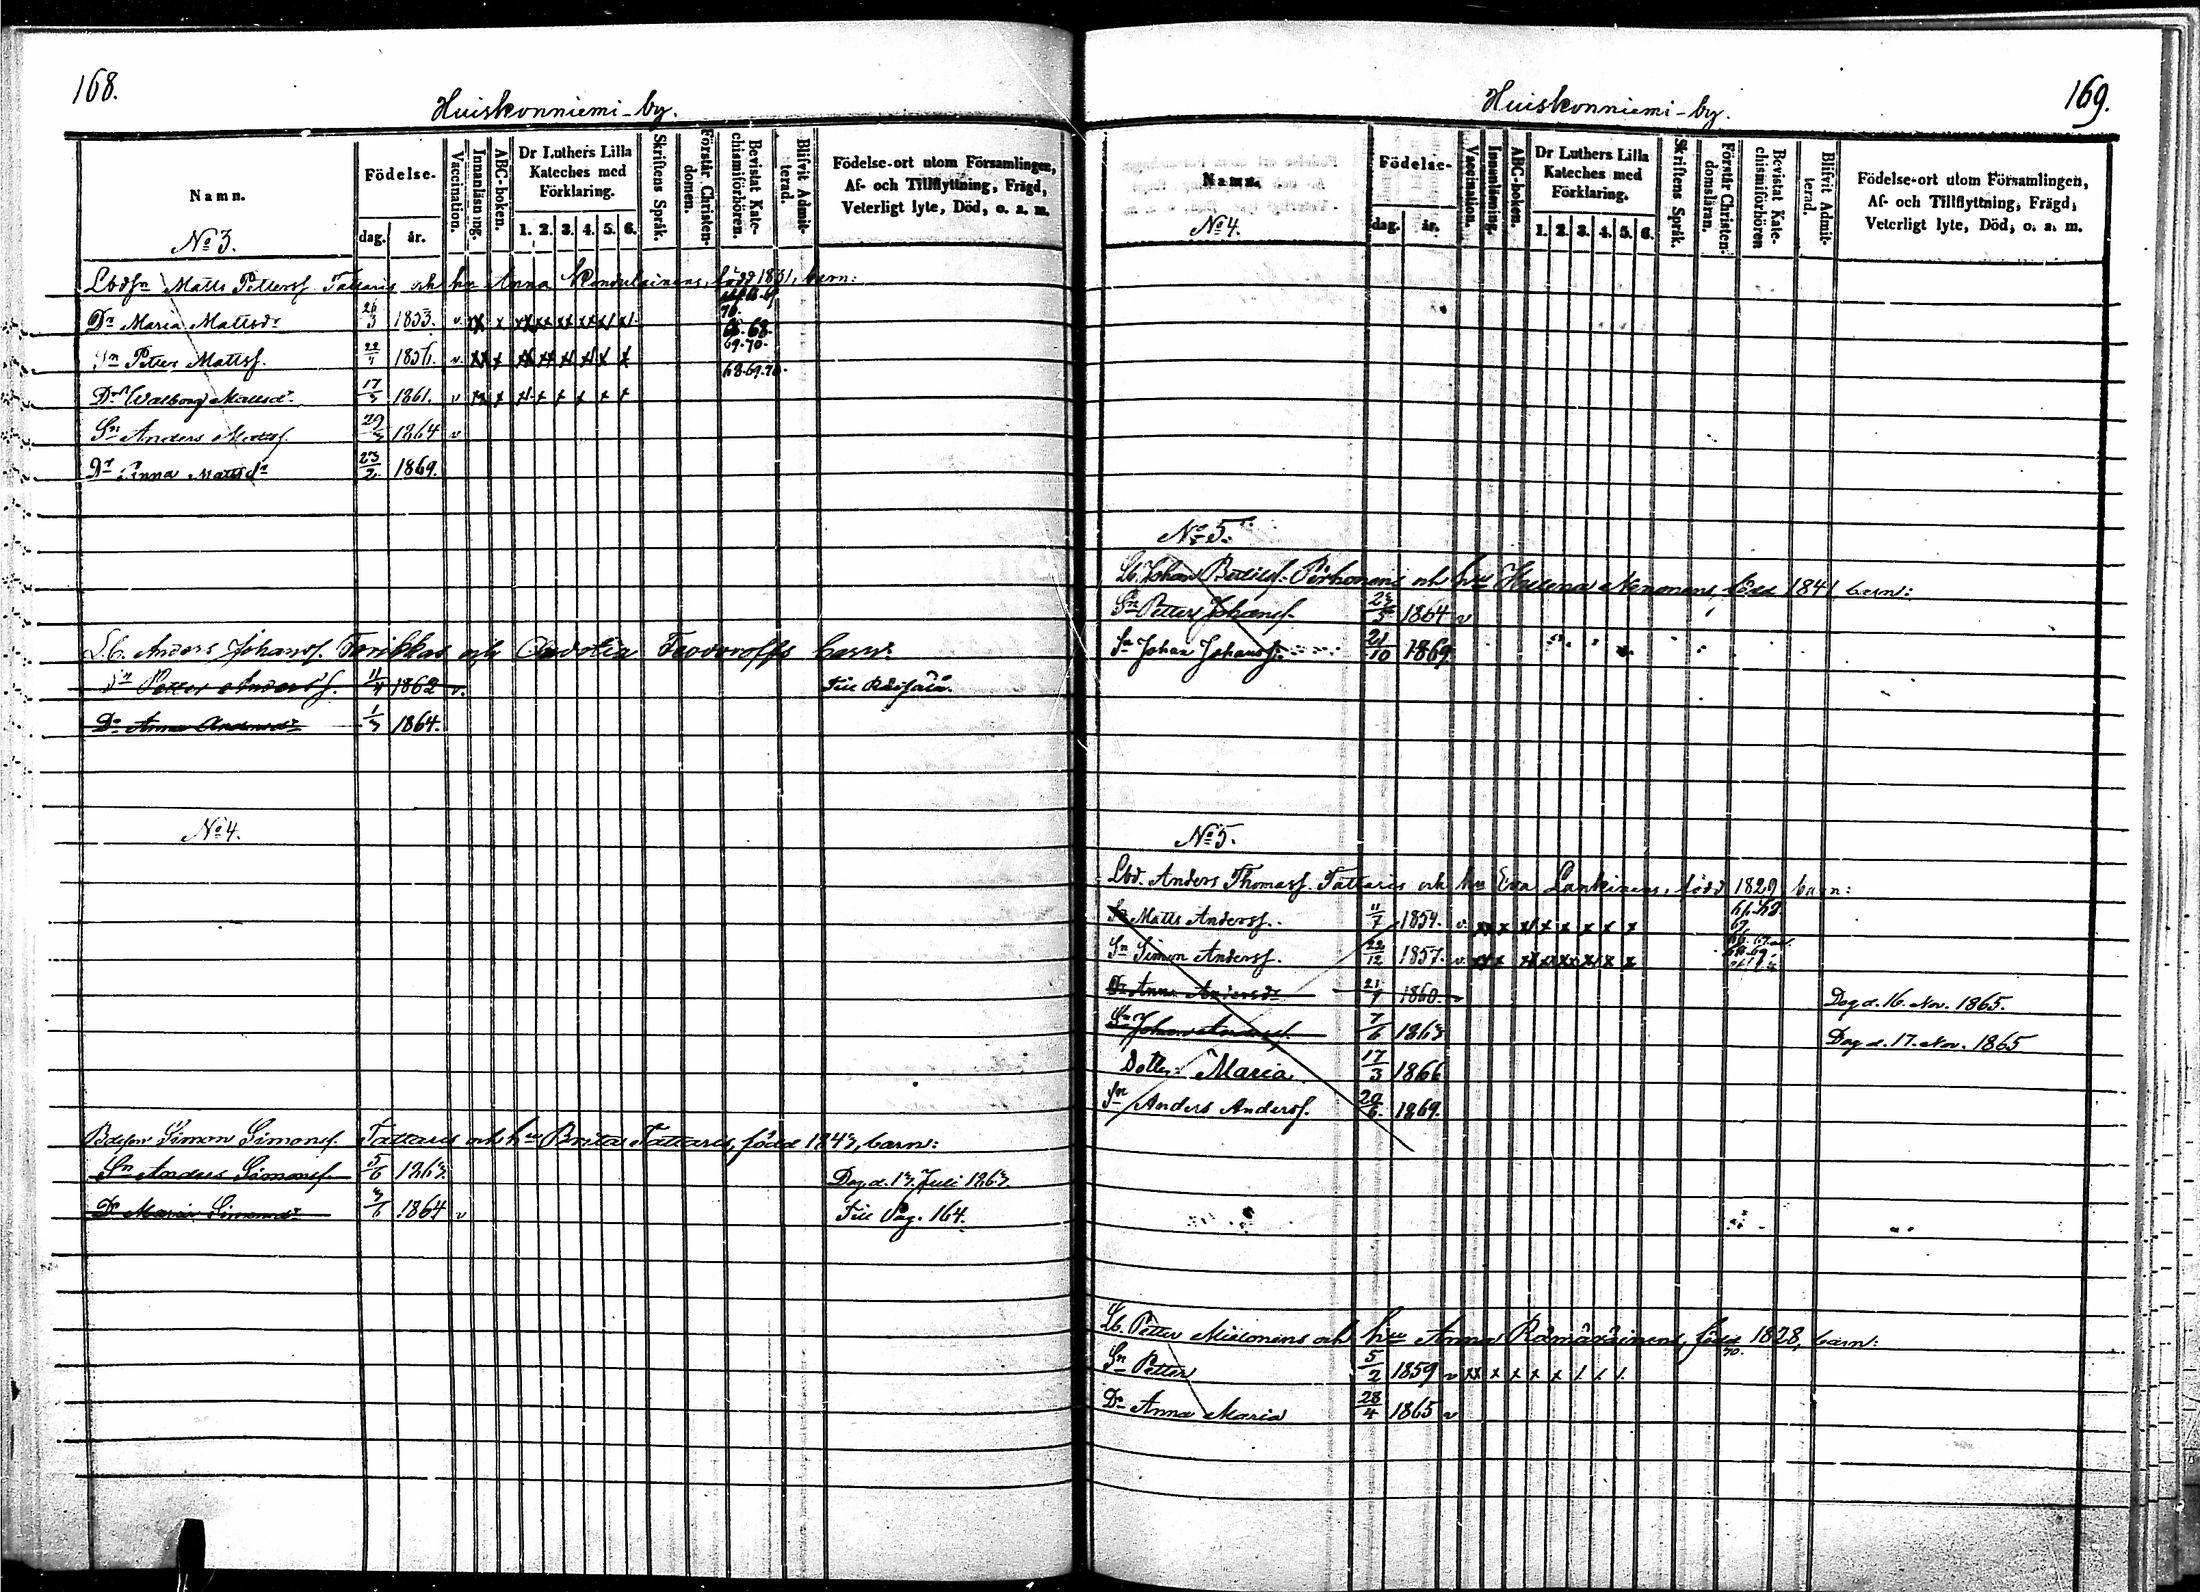 168.
Huiskonniemi-by.
Namn.
Födelse-
dag.
år.
Vaccination.
Innanläsning.
ABC-boken.
Dr Luthers Lilla Kateches med Förklaring.
1. 2. 3. 4. 5. 6.
Skriftens Språk.
Förstår Christendomen.
Bevistat Katechismiförhören.
Blifvit Admitterad.
Födelse-ort utom Församlingen, Af- och Tillflyttning, Frägd, Veterligt lyte, Död, o. s. m.
No 3.
Matts Petterss. Tattaris och hu Anna född 1831, barn:
Dr Maria Mattsdr 26/3 1853. v.
68. 68.
69. 70.
Sn Petter Mattss. 1856. v.
68. 69. 70.
Dr Walborg Mattsdr. 17/5 1861. v
Sn Anders Mattss. 29/3 1864 v
Dr Anna Mattsdr 23/2 1869.
L.b. Anders Johanss. och Feodoroffs barn:
Sn Petter Anderss. 11/4 1862 v. Till Räisälä.
Dr Anna Andersdr 1/3 1864.
No 4.
Simon Simonss. Tattaris och hu Brita Tattaris, född 1843, barn:
Sn Anders Simonss. 5/6 1863. Dog d. 13. Juli 1863.
Dr Maria Simonsdr 3/6 1864 v Till Pag. 164.
169.
Huiskonniemi-by.
Namn.
No 4.
Födelse-
dag.
år.
Vaccination.
Innanläsning.
ABC-boken.
Dr Luthers Lilla Kateches med Förklaring.
1. 2. 3. 4. 5. 6.
Skriftens Språk.
Förstår Christendomsläran.
Bevistat Katechismiförhören
Blifvit Admitterad.
Födelse-ort utom Församlingen, Af- och Tillflyttning, Frägd, Veterligt lyte, Död, o. s. m.
No 5.
Lb. Johan Bertilss. Pörhönens och hu Helena Nenonens, född 1841 barn:
Sn Petter Johanss. 1864 v
Sn Johan Johanss. 21/10 1869.
No 5.
Lbd. Anders Thomass. Tattaris och hu Eva Lankinens, född 1829, barn:
Sn Matts Anderss. 11/7 1854. v.
Sn Simon Anderss. 22/12 1857. v.
Dr Anna Andersdr 1860. Dog d. 16. Nov. 1865.
Sn Johan Anderss. 7/6 1863 Dog d. 17. Nov. 1865
Dotter Maria 17/3 1866
Sn Anders Anderss. 20/6. 1869.
Lb. Petter Mielonens och hu Anna född 1828, barn:
70.
Sn Petter 5/2 1859 v
Dr Anna Maria 28/4 1865 v